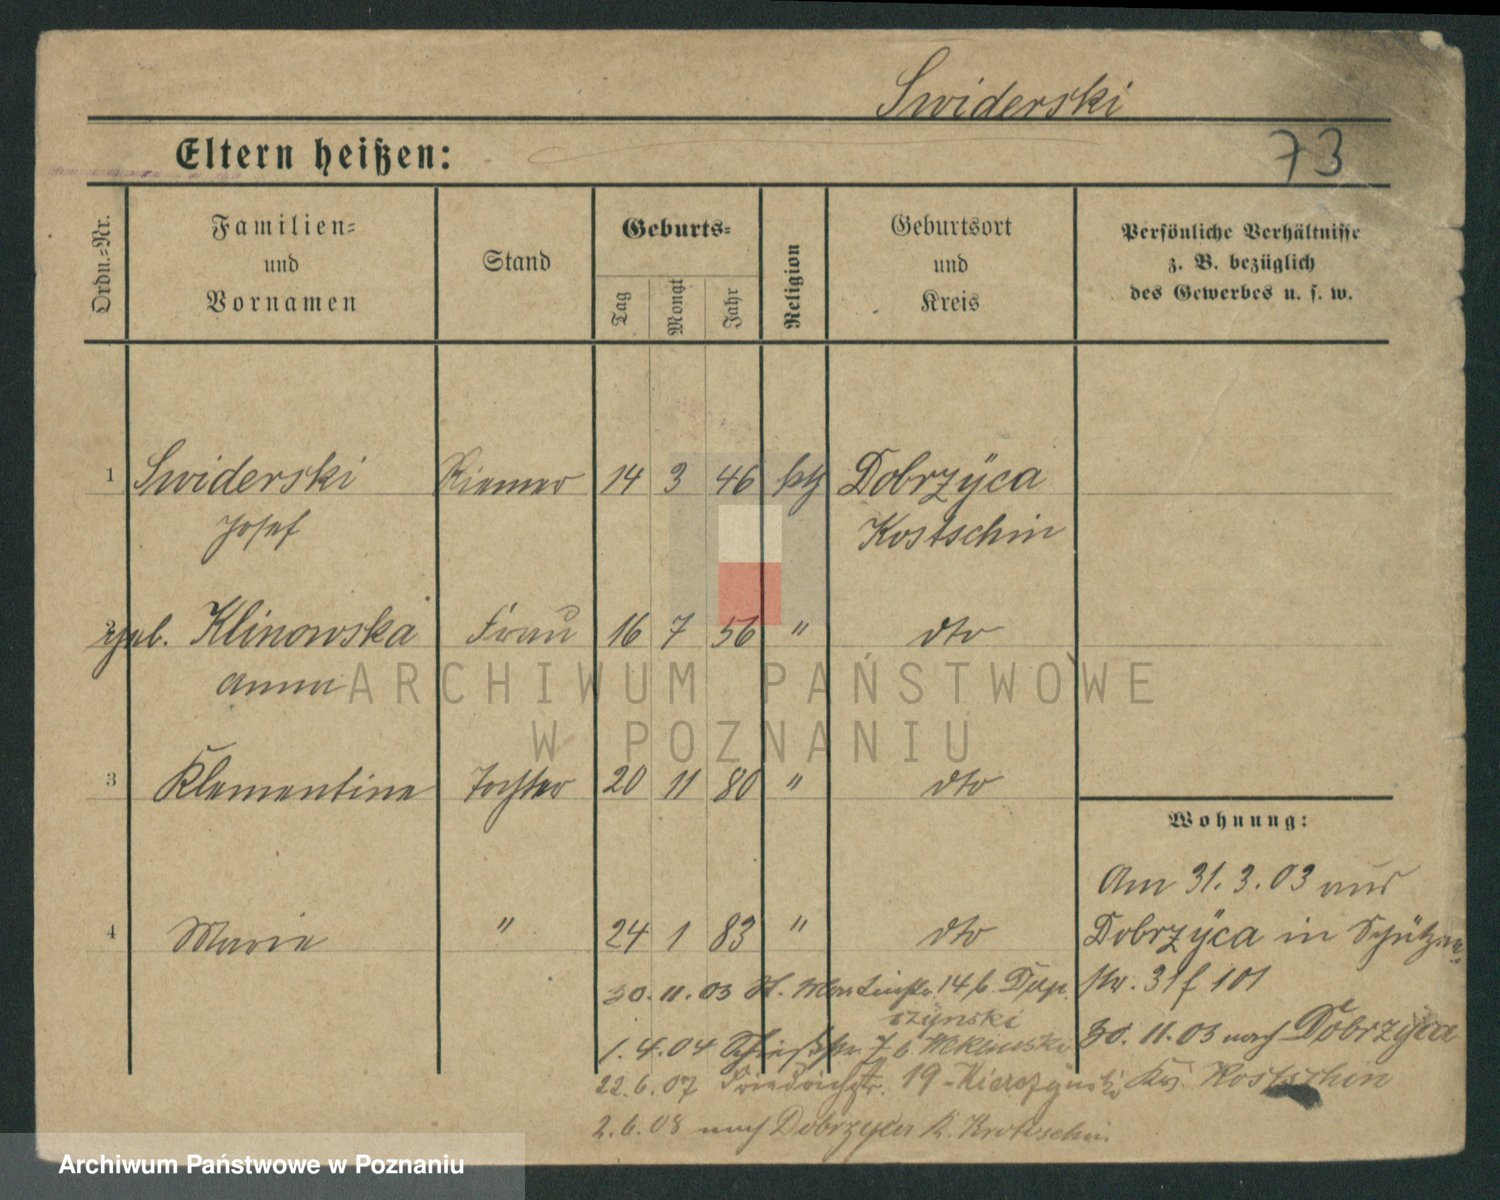 Swiderski
Eltern heißen:
73
Ordn.-Nr.
Familien-
und
Vornamen
Stand
Geburts-
Tag
Monat
Jahr
Religion
Geburtsort
und
Kreis
Persönliche Verhältnisse
z. B. bezüglich
des Gewerbes u. s. w.
1 Swiderski Riemer 14 3 46 kth Dobrzÿca
Josef Kostschin
2 geb. Klinowska Frau 16 7 56 " dto
Anna
3 Klementine Tochter 20 11 80 " dto
Wohnung:
Am 31.3.03 aus
4 Marie " 24 1 83 " dto
Dobrzÿca in Schützen-
str. 31 f 101
30.11.03 St. Martinstr. 14 b.
30.11.03 nach Dobrzÿca
Krs. Kostschin
1.4.04 Schießstr. 7 b
22.6.07 Friedrichstr. 19
2.6.08 nach Dobrzyca K. Krotoschin
ARCHIWUM PAŃSTWOWE
W POZNANIU
Archiwum Państwowe w Poznaniu